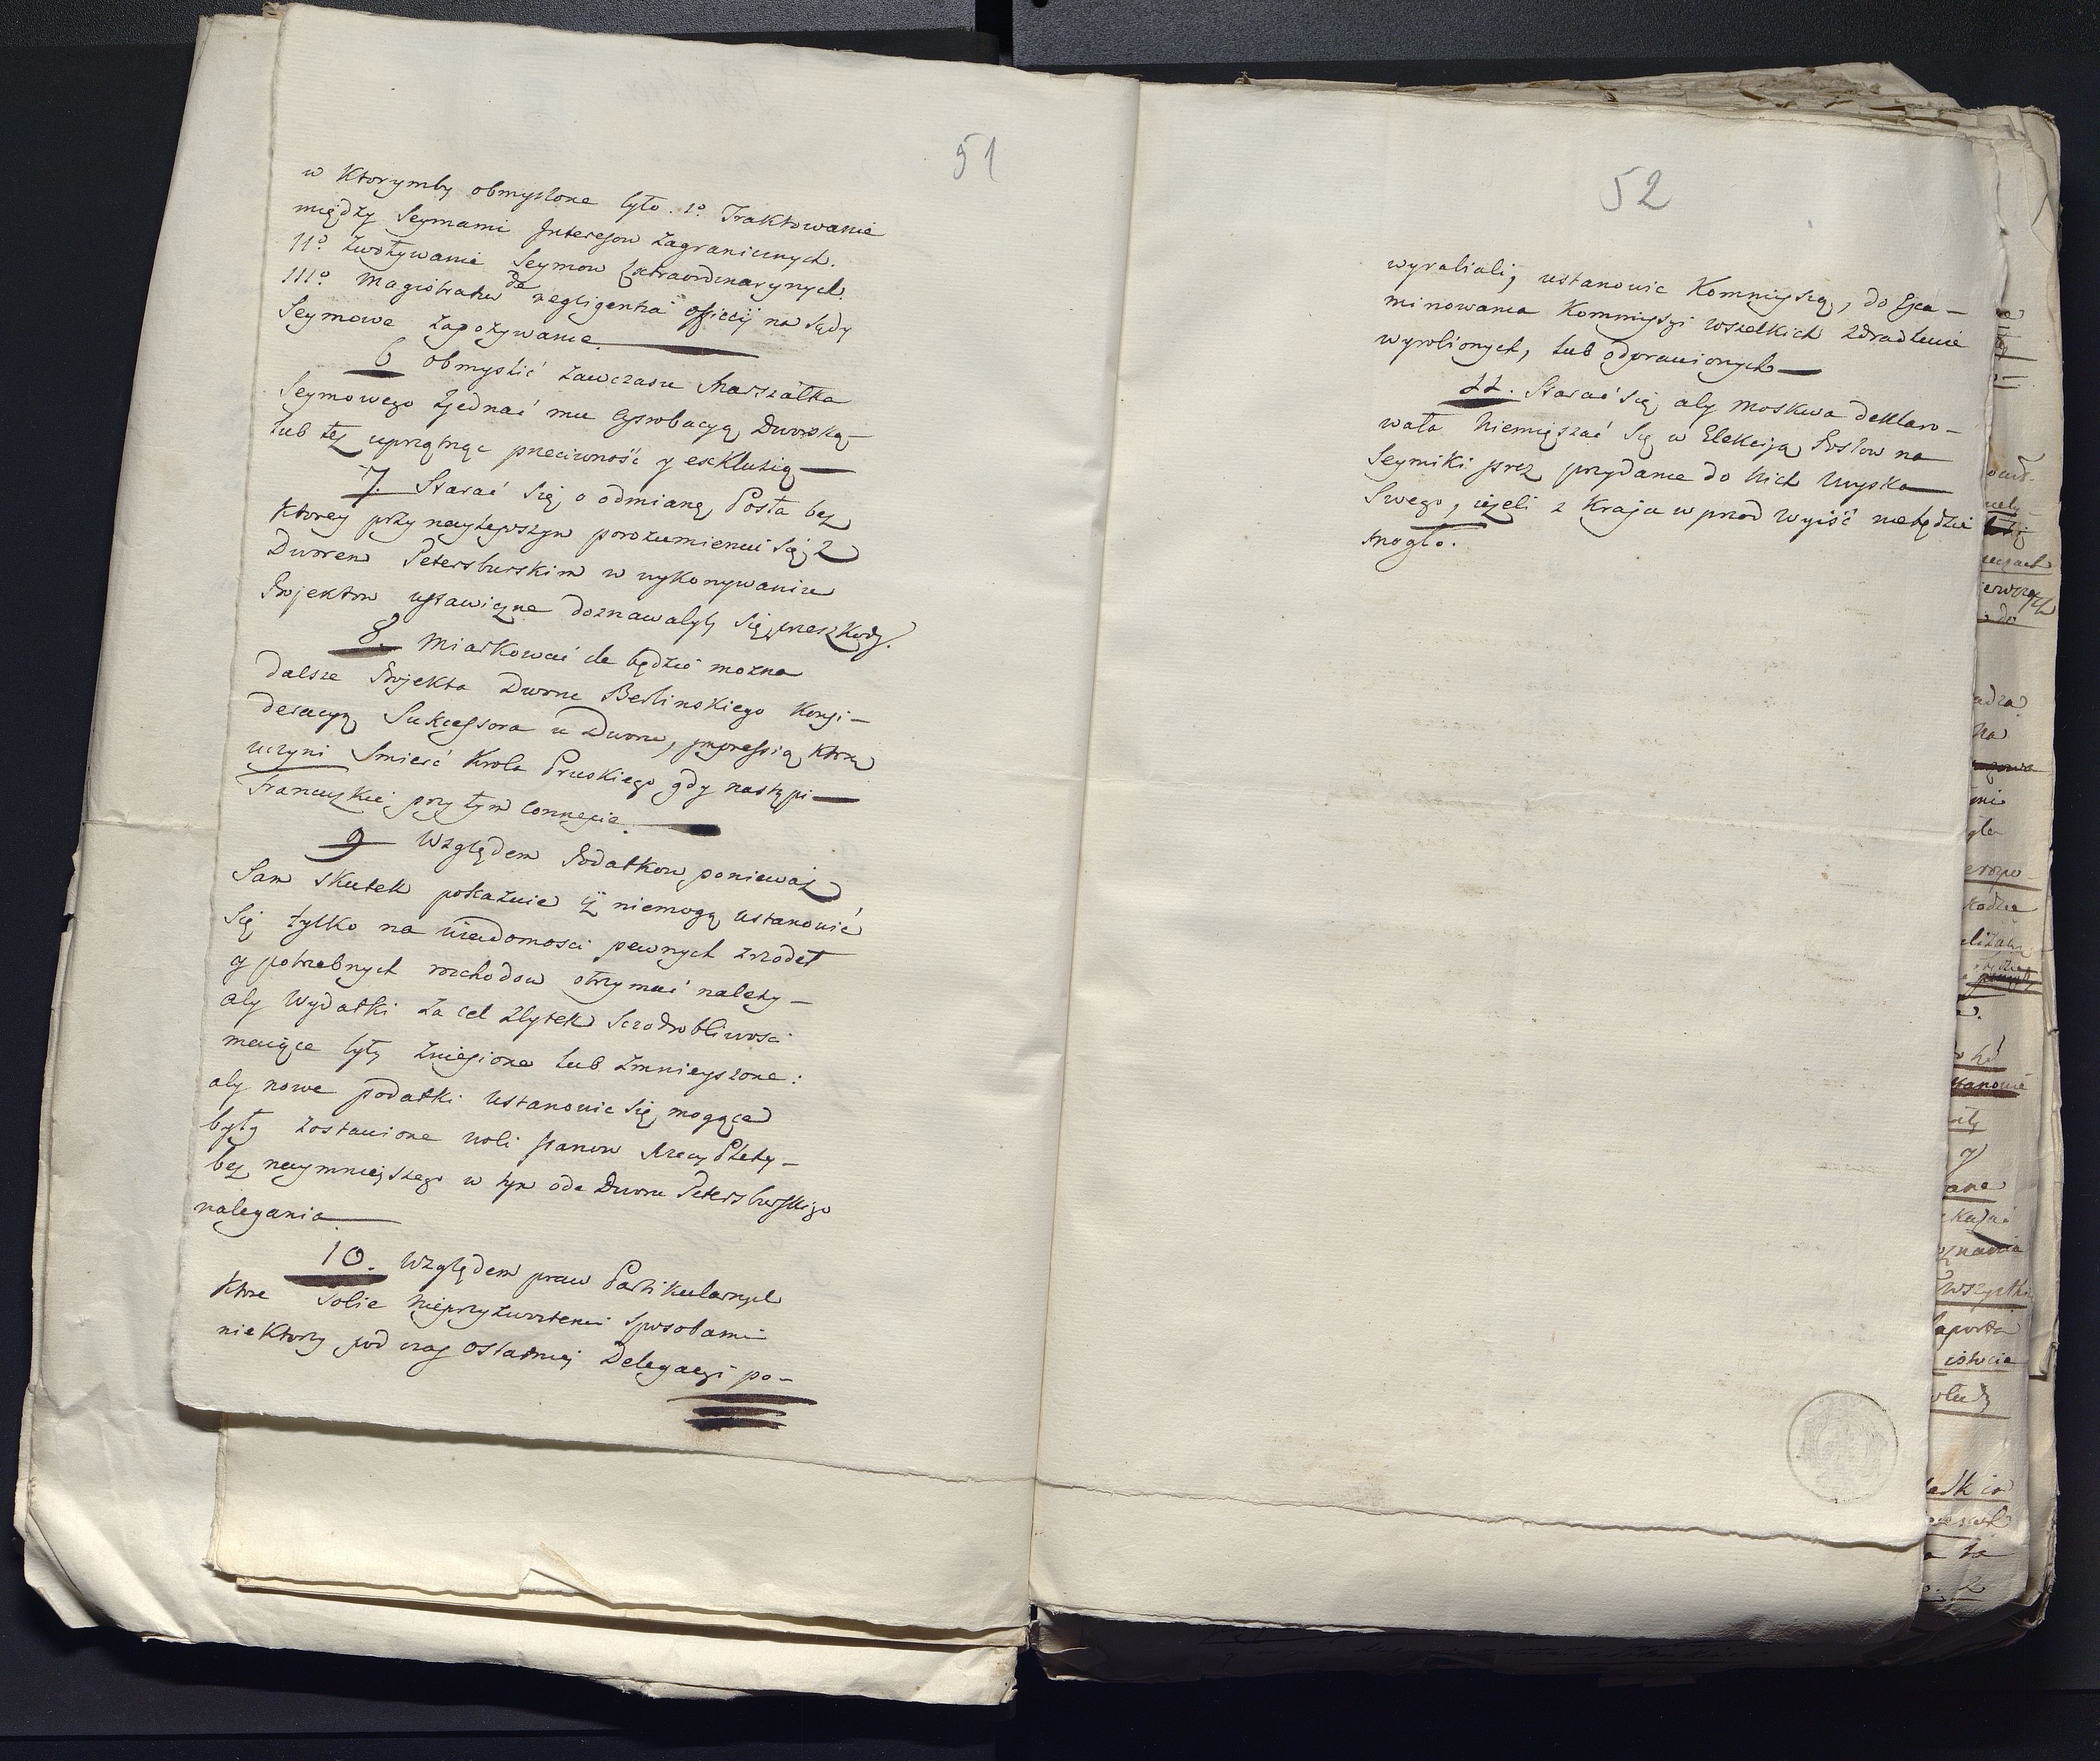 51
w Ktorymby obmyslone było. 1º Traktowanie
między Seymami Interesow zagranicznych.
IIº Zwoływanie Seymow Extraordynaryinych.
IIIº Magistratow de negligentia officij na Sądy
Seymowe Zapozywanie.
6 Obmyslić zawczasu Marszałka
Seymowego zjednać mu approbacyą Dworską
lub też uprzątnąc przeciwność y exkluzią
7. Starać się o odmianę Posła bez
Ktorey przy naylepszym porozumieniu się z
Dworem Petersburskim w wykonywaniu
Projektow ustawiczne doznawałyby się przeszkody.
8. Miarkować ile będzie można
dalsze Projekta Dworu Berlinskiego Konsi-
deracyą Sukcessora u Dworu, impressią Ktorą
uczyni Smierć Krola Pruskiego gdy nastąpi
Francuzkiej przy tym
9 Względem Podatkow ponieważ
Sam skutek pokazuie iż niemogą ustanowić
się tylko na wiadomosci pewnych zrzodeł
y potrzebnych rozchodow otrzymać należy
aby Wydatki za cel zbytek Szczodrobliwosci
maiące były zniesione lub zmnieyszone:
aby nowe podatki ustanowic się mogące
były zostawione woli stanow Rzeczy Pltey
bez naymniejszego w tym ode Dworu Petersburskigo
nalegania
10. Względem praw Partikularnych
Ktore Sobie nieprzyzwoitemi Sposobami
nieKtorzy pod czas ostatniej Delegacyi po-
52
wyrabiali, ustanowic Kommissyą, do Exa-
minowania Kommissyi wszelkich zdradliwie
wyrobionych, lub odprawionych
11. Starać się aby Moskwa deklaro-
wała niemięszać się w Elekcyą Posłow na
Seymiki przez przydanie do nich Woyska
Swego, ieżeli z Kraju w przod wyiść niebędzie
mogło.